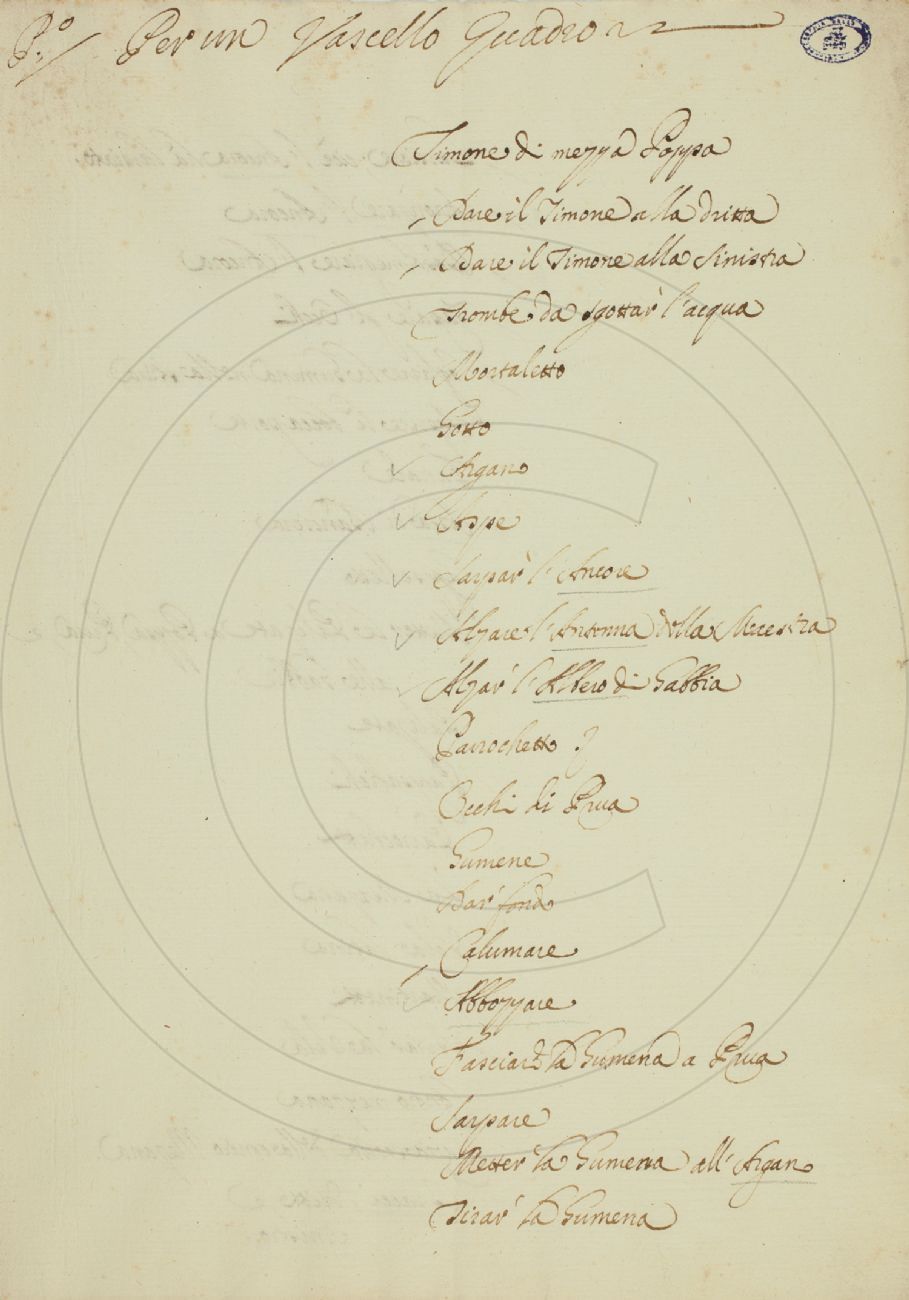 P.º Per un Vascello Quadro
Timone di mezza Poppa
Dare il Timone alla dritta
Dare il Timone alla Sinistra
Trombe da sgottar l'acqua
Mortaletto
Gotto
Argano
Aspe
Sarpar l'Ancore
Alzare l'Antenna della Maestra
Alzar l'Albero di Gabbia
Parrochetto ?
Occhi di Prua
Gumene
Dar fondo
Calumare
Abbozzare
Fasciar la Gumena a Prua
Sarpare
Metter la Gumena all'Argano
Tirar la Gumena